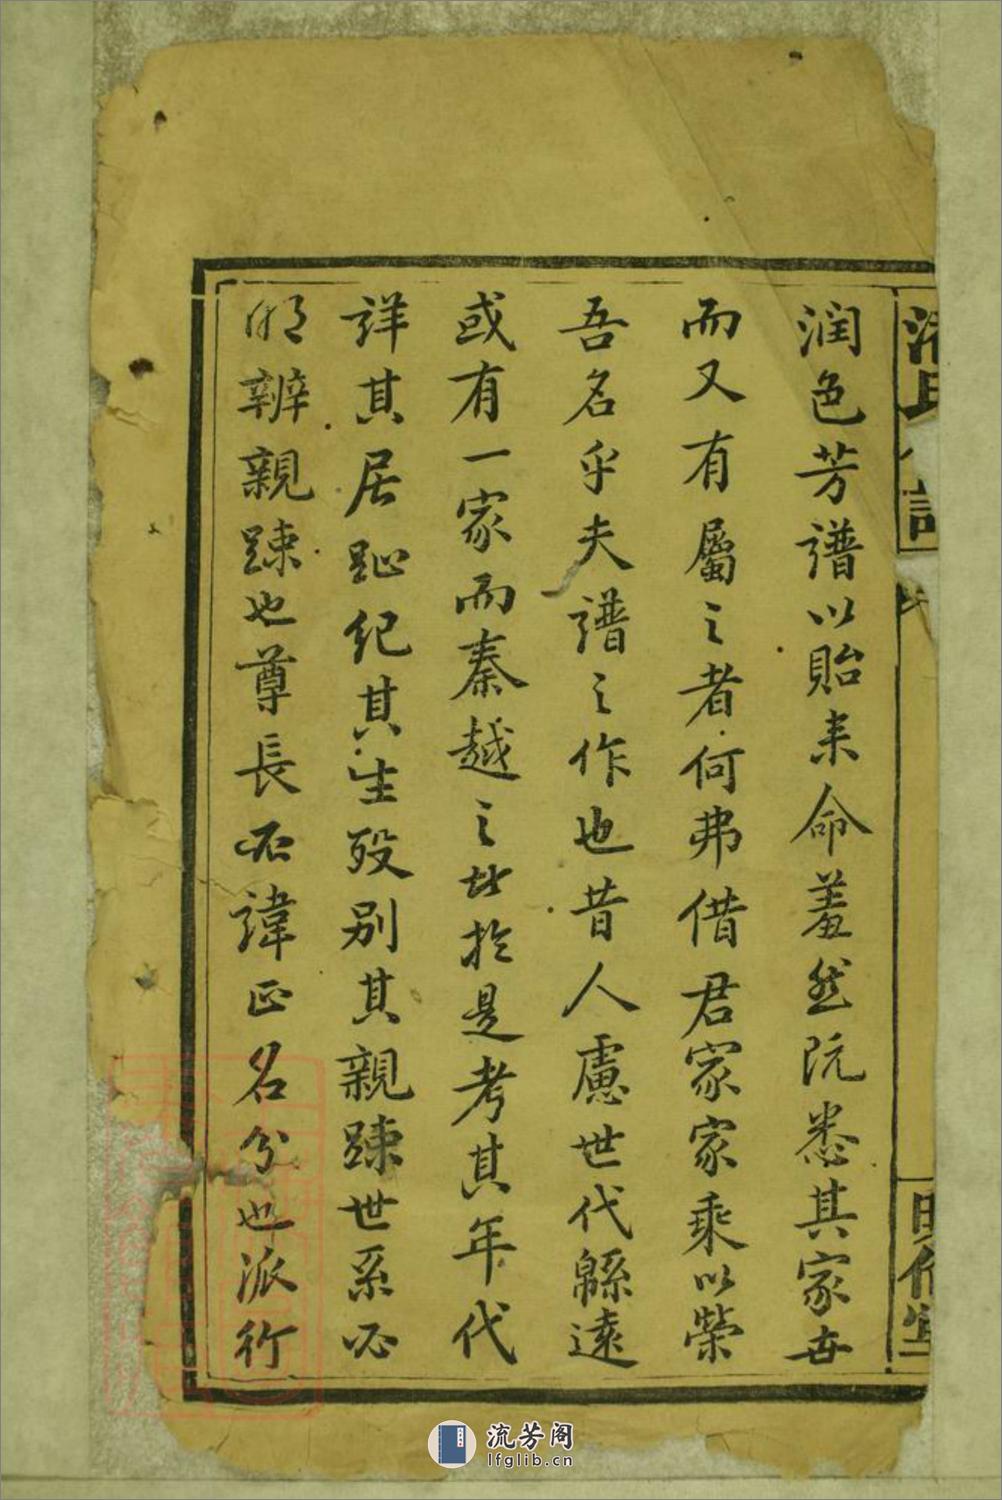 潤色芳譜以貽来命羞然阮悉其家世
而又有屬之者何弗借君家家乘以榮
吾名乎夫譜之作也昔人慮世代緜遠
或有一家而秦越之此於是考其年代
詳其居趾纪其生殁别其親踈世系必
明辨親踈也尊長必諱正名分也派行
流芳阁
lfglib.cn